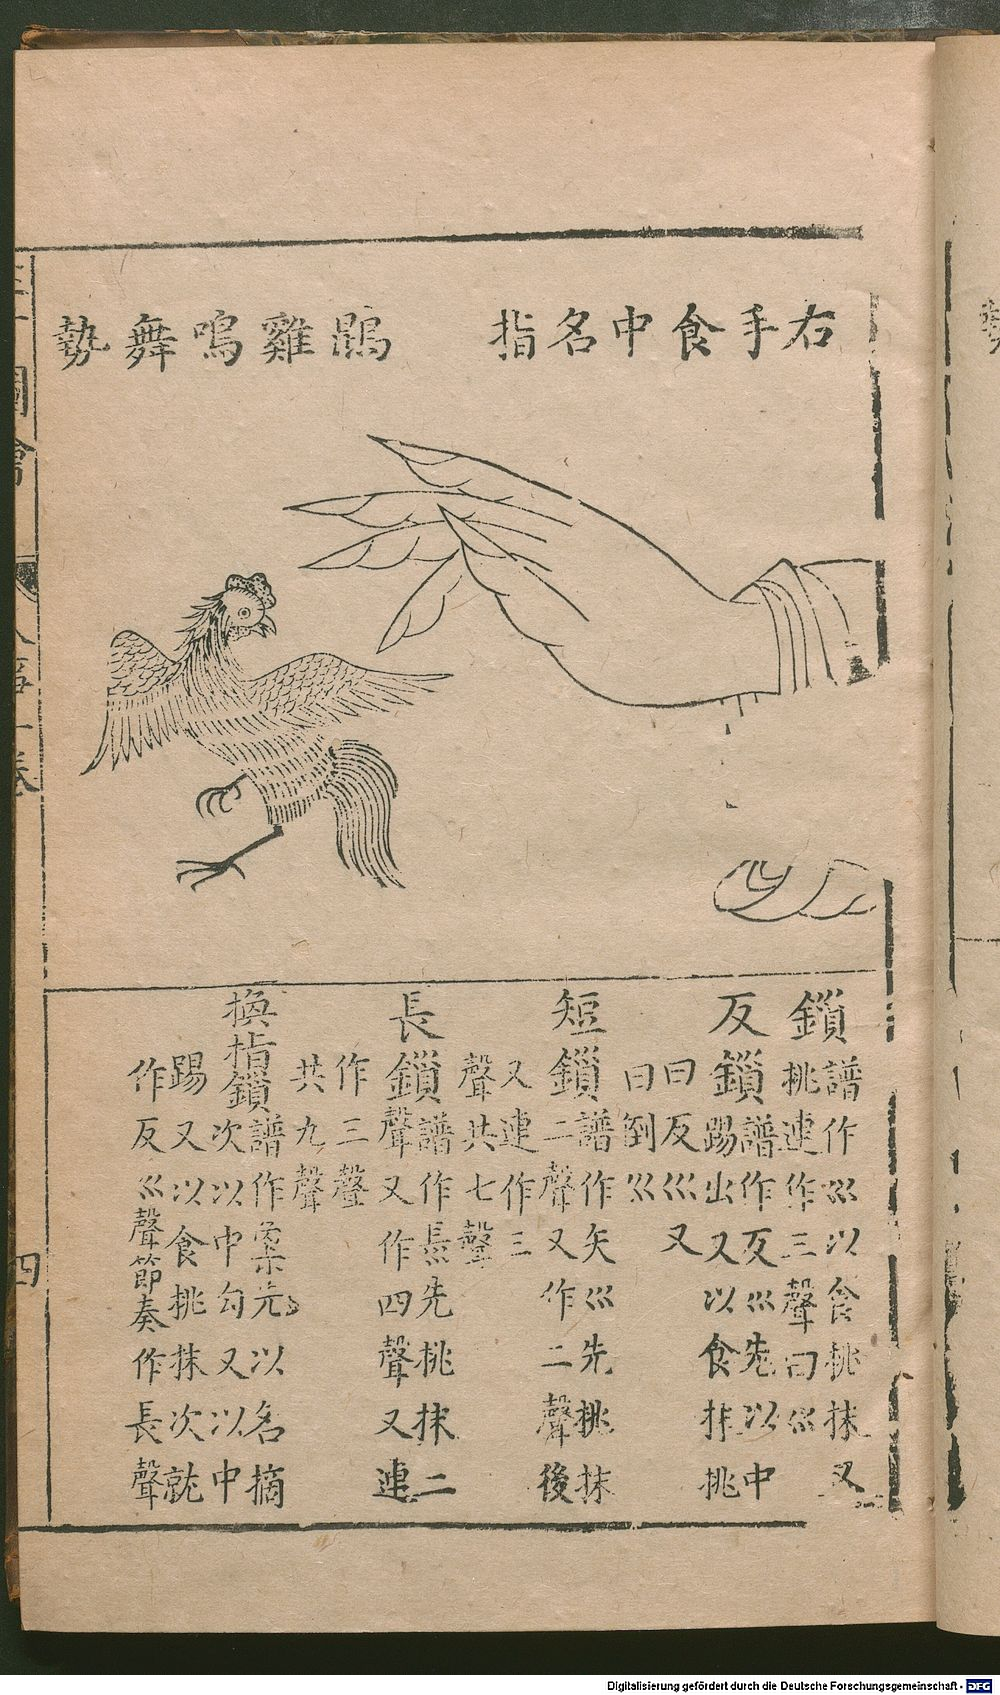 右手食中名指
鵾雞鳴舞勢
鎖譜作巛以食挑抹又
挑連作三聲曰巛
反鎖譜作反巛先以中
踢出又以食抹挑
曰反巛又
曰倒巛
短鎖譜作矢巛先挑抹
二聲又作二聲後
又連作三
聲共七聲
長鎖譜作長巛先挑抹二
聲又作四聲又連
作三聲
共九聲
換指鎖譜作
先以名摘
次以中勾又以中
踢又以食挑抹次就
作反巛聲節奏作長聲
圖會
人事一卷
四
Digitalisierung gefördert durch die Deutsche Forschungsgemeinschaft - DFG